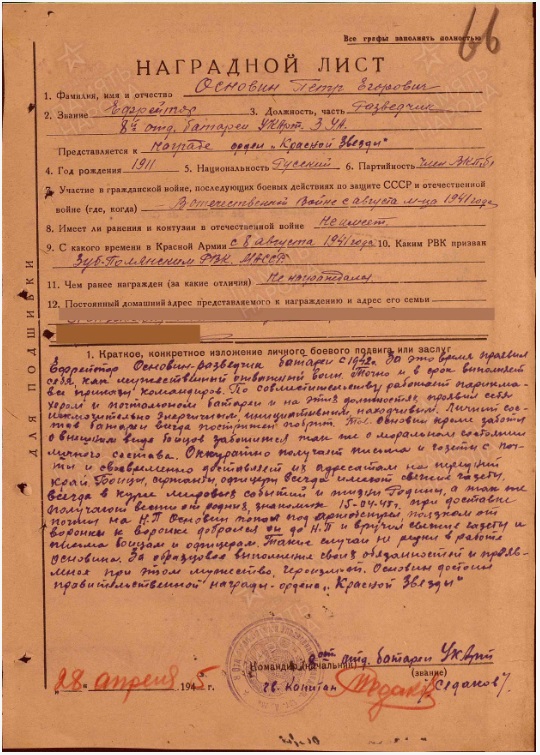 Все графы заполнять полностью
66
НАГРАДНОЙ ЛИСТ
1. Фамилия, имя и отчество Основин Петр Егорович
2. Звание Ефрейтор 3. Должность, часть Разведчик
8й отд. батареи УКАрт. 3 УА.
Представляется к награде орден „Красной Звезды"
4. Год рождения 1911 5. Национальность Русский 6. Партийность Член ВКП(б)
7. Участие в гражданской войне, последующих боевых действиях по защите СССР и отечественной
войне (где, когда) В отечественной войне с августа м-ца 1941 года
8. Имеет ли ранения и контузии в отечественной войне Не имеет.
9. С какого времени в Красной Армии с 8 августа 1941 года 10. Каким РВК призван
Зуб-Полянским РВК МАССР.
11. Чем ранее награжден (за какие отличия) Не награждался
12. Постоянный домашний адрес представляемого к награждению и адрес его семьи
ДЛЯ ПОДШИВКИ
1. Краткое, конкретное изложение личного боевого подвига или заслуг
Ефрейтор Основин-разведчик батареи с 1942г. За это время проявил
себя как мужественный отважный воин. Точно и в срок выполняет
все приказы командиров. По совместительству работает парикма-
хером и почтальоном батареи и на этих должностях проявил себя
исключительно энергичным, инициативным, находчивым. Личный сос-
тав батареи всегда пострижен побрит. Тов. Основин кроме заботы
о внешнем виде бойцов заботится так же о моральном состоянии
личного состава. Аккуратно получает письма и газеты с поч-
ты и своевременно доставляет их адресатам на передний
край. Бойцы, сержанты, офицеры всегда имеют свежие газеты,
всегда в курсе мировых событий и жизни Родины, а так же
получают вести от родных, знакомых. 15-04-45г. при доставке
почты на Н.П. Основин попал под артобстрел, ползком от
воронки к воронке добрался он до Н.П и вручил свежие газеты и
письма бойцам и офицерам. Такие случаи не редки в работе
Основина. За образцовое выполнение своих обязанностей и прояв-
ленное при этом мужество, героизм т. Основин достоин
правительственной награды-ордена „Красной Звезды"
Командир (начальник) 8 отд. батареи УКАрт
(звание)
28 апреля 1945 г. гв. капитан /Седаков/